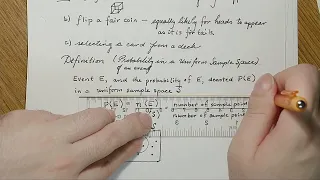 b) flip a fair coin – equally likely for heads to appear
as it is for tails.
c) selecting a card from a deck
Definition (Probability in a Uniform Sample Space)
of an event
Event E, and the probability of E, denoted P(E)
in a uniform sample space S
P(E) = n(E) = number of sample point
number of sample point
E S